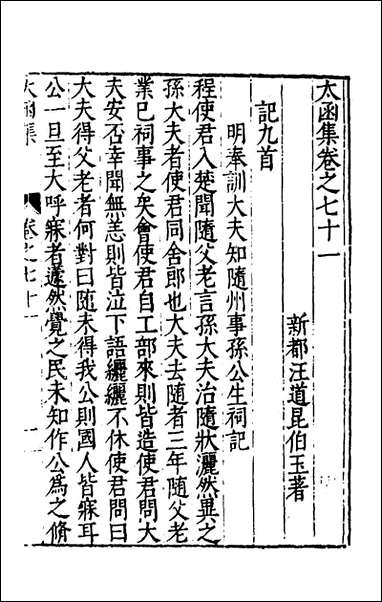 太函集卷之七十一
新都汪道昆伯玉著
記九首
明奉訓大夫知隨州事孫公生祠記
程使君入楚聞隨父老言孫大夫治隨狀灑然異之
孫大夫者使君同舍郎也大夫去隨者三年隨父老
業已祠事之矣會使君自工部來則皆造使君問大
夫安否幸聞無恙則皆泣下語纚纚不休使君問曰
大夫得父老者何對曰隨未得我公則國人皆寐耳
公一旦至大呼寐者蘧然覺之民未知作公爲之脩
太函集
卷之七十一
一